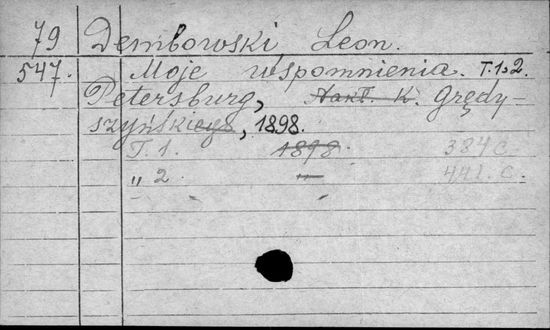 79 Dembowski, Leon.
547. Moje wspomnienia. T.1-2.
Petersburg, Nakł. K. Grędy-
szyńskiego, 1898.
T. 1. 1898. 384 c.
„ 2. — 441. c.